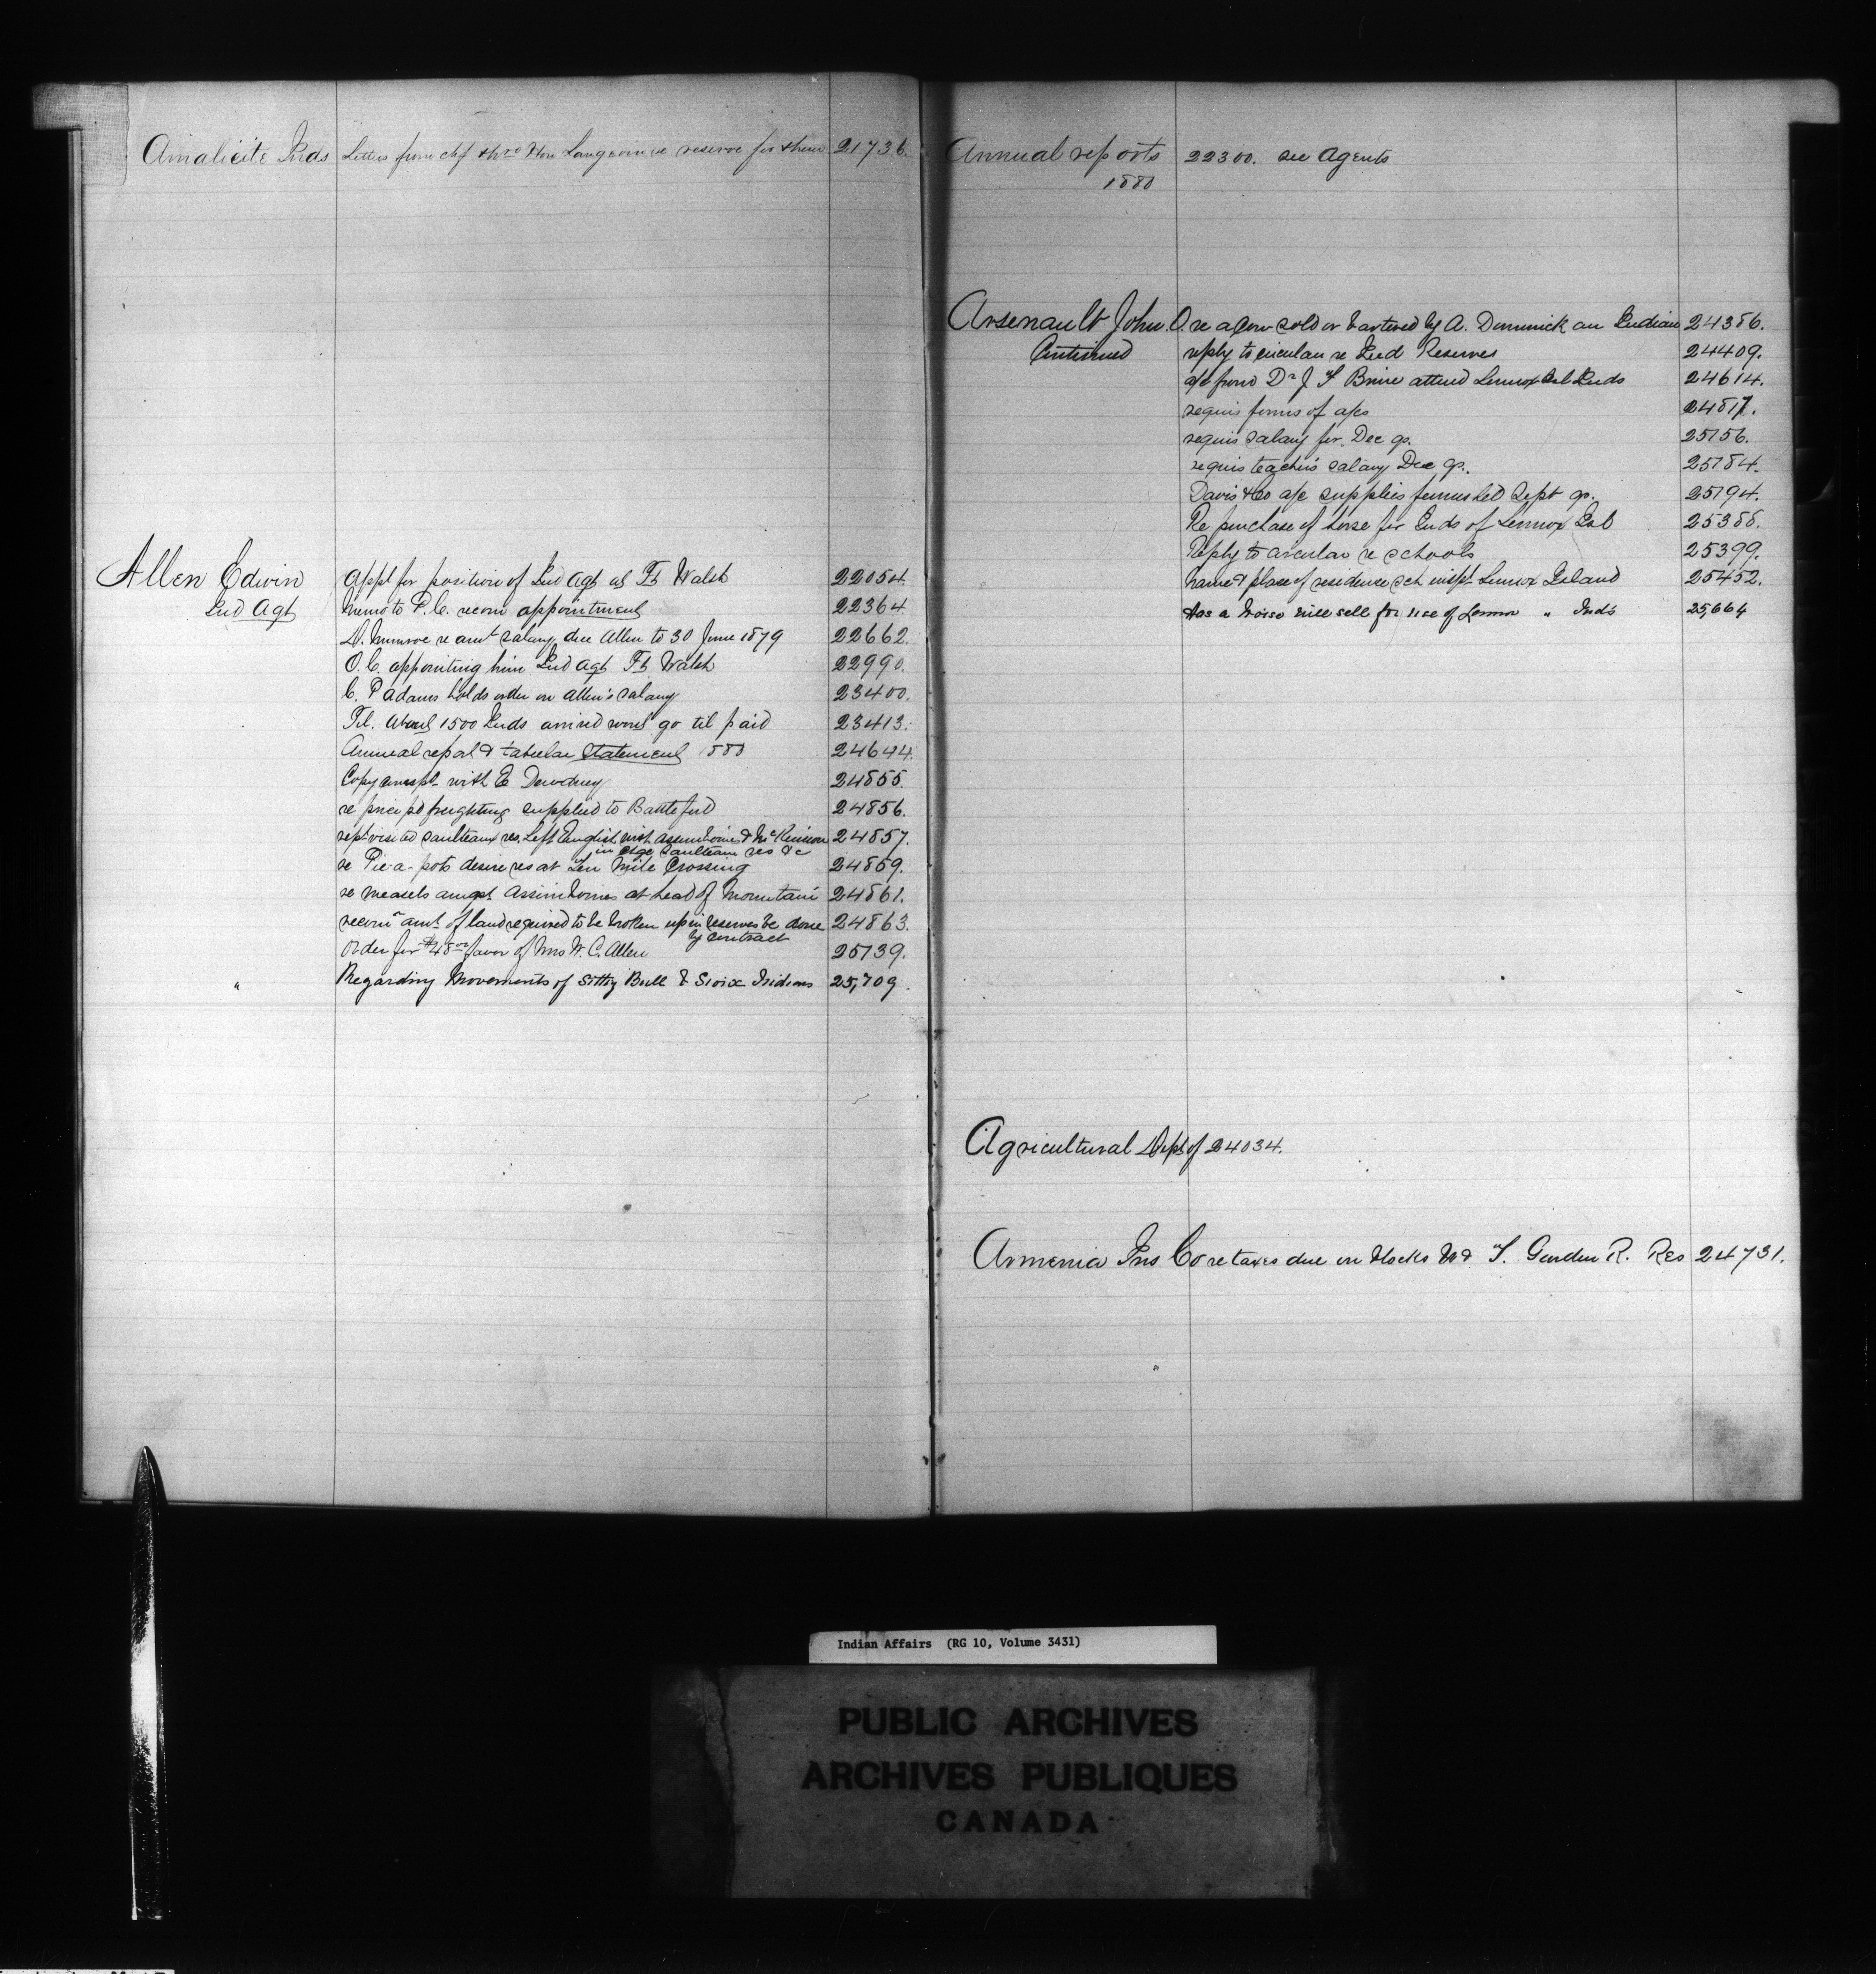 Amalicite Inds Letters from chf thro Hon Langevin re reserve for them 21736.
Allen Edwin Appl for position of Ind Agt at Ft Walsh 22054.
Ind Agt Memo to P.C. recom appointment 22364.
D. Munroe re amt salary due Allen to 30 June 1879 22662.
O.C. appointing him Ind Agt Ft Walsh 22990.
C. P Adams holds order on Allen's salary 23400.
Tel. About 1500 Inds arrived wont go til paid 23413.
Annual report & tabular statement 1880 24644.
Copy corresp with E Dewdney 24855.
re price pd freighting supplied to Battleford 24856.
rept visited Saulteaux res. Left English with Assiniboines & McKinnon 24857.
in chge Saulteaux res &c
re Pie-a-pots desire res at Ten Mile Crossing 24859.
re measels amgst Assiniboines at head of Mountain 24861.
recom amt of land required to be broken up in reserves be done 24863.
by contract
Order for $48 favor of Mrs W. C. Allen 25139.
" Regarding Movements of Sitting Bull & Sioix Indians 25,709.
Annual reports 22300. see Agents
1880
Arsenault John. O. re a Cow sold or bartered by A. Dominick an Indian 24386.
Continued reply to circular re Ind Reserves 24409.
a/c from Dr J F attend Lennox Isl Inds 24614.
requis forms of a/cs 24817.
requis salary for Dec qr. 25156.
requis teacher's salary Dec qr. 25184.
Davis & Co a/c supplies furnished Sept qr. 25194.
Re purchase of horse for Inds of Lennox Isl 25388.
Reply to circular re schools 25399.
name & place of residence sch inspt Lennox Island 25452.
Has a horse will sell for use of Lennox " Inds 25,664
Agricultural Dept of 24034.
Armenia Ins Co re taxes due on blocks & F. Garden R. Res 24731.
Indian Affairs (RG 10, Volume 3431)
PUBLIC ARCHIVES
ARCHIVES PUBLIQUES
CANADA